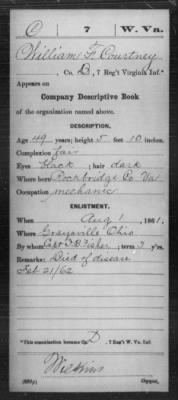 C | 7 | W. Va.
William F. Courtney
, Co. D, 7 Reg't Virginia Inf.*
Appears on
Company Descriptive Book
of the organization named above.
DESCRIPTION.
Age 49 years; height 5 feet 10 inches.
Complexion fair
Eyes black; hair dark
Where born Rockbridge Co Va
Occupation mechanic
ENLISTMENT.
When Aug 1, 1861.
Where Graysville Ohio
By whom Capt Fisher; term 3 y'rs.
Remarks: Died of disease
Feb 21/62
*This organization became Co. D, 7 Reg't W. Va. Inf.
Wilkins
Copyist.